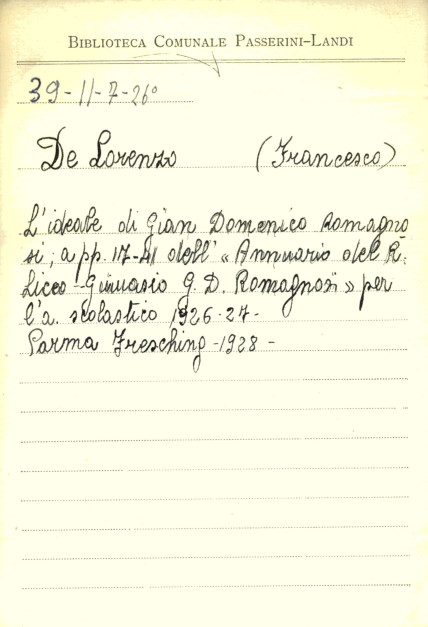 BIBLIOTECA COMUNALE PASSERINI-LANDI
39-11-7-26°
De Lorenzo (Francesco)
L'ideale di Gian Domenico Romagno
si; a pp. 17-41 dell' « Annuario del R.
Liceo-Ginnasio G. D. Romagnosi » per
l'a. scolastico 1926-27-
Parma Fresching -1928-